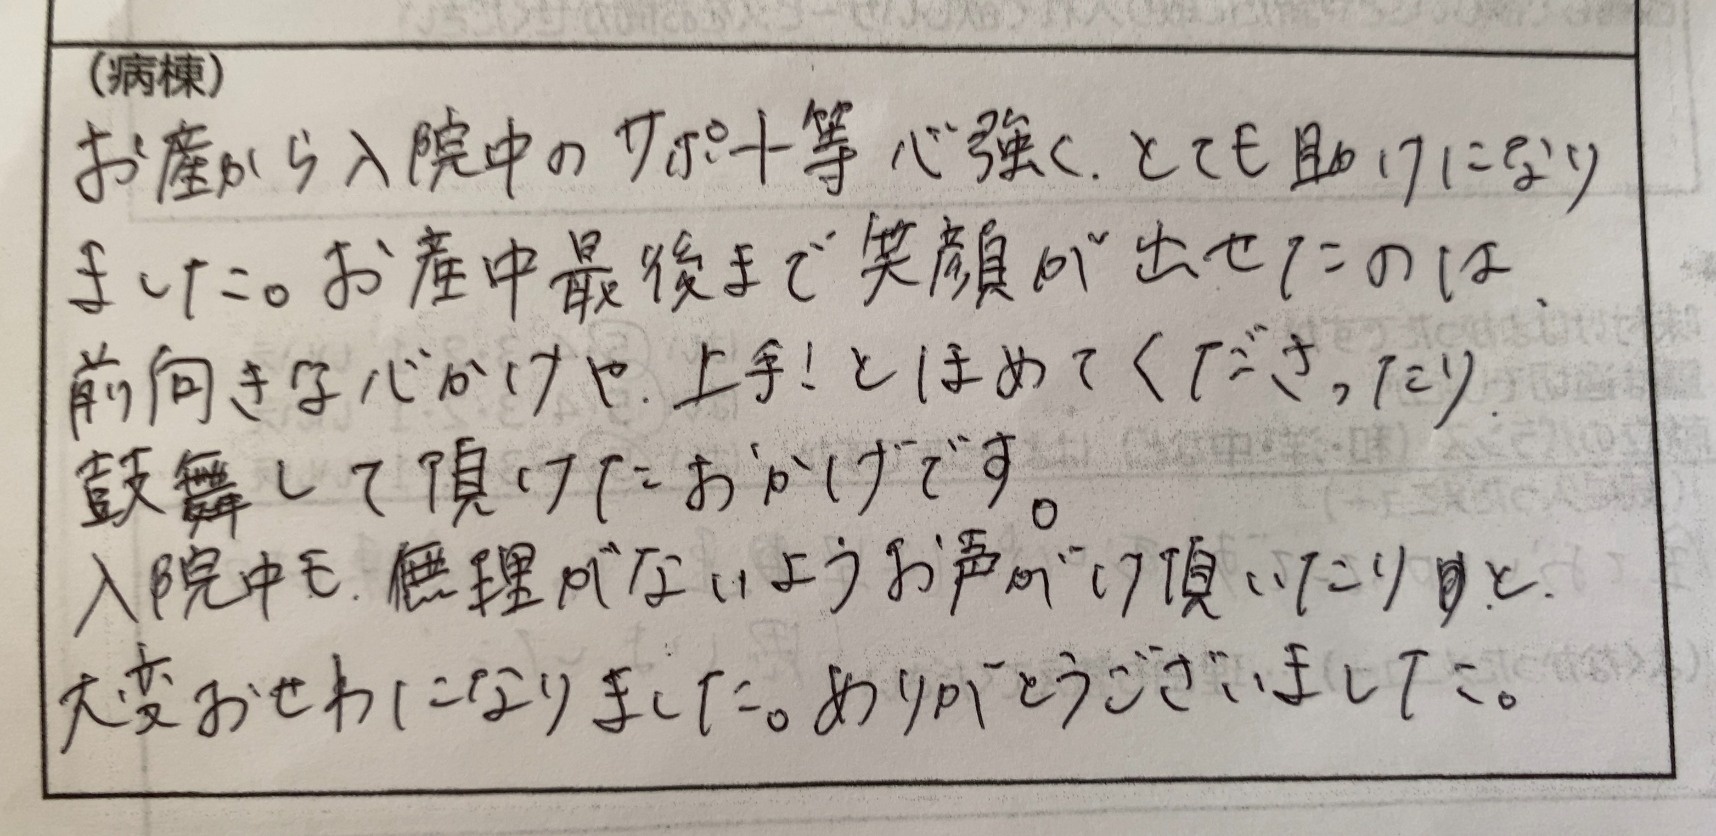 (病棟)
お産から入院中のサポート等心強く、とても助けになり
ました。お産中最後まで笑顔が出せたのは、
前向きな心がけや、上手!とほめてくださったり、
鼓舞して頂けたおかげです。
入院中も、無理がないようお声がけ頂いたりと、
大変おせわになりました。ありがとうございました。